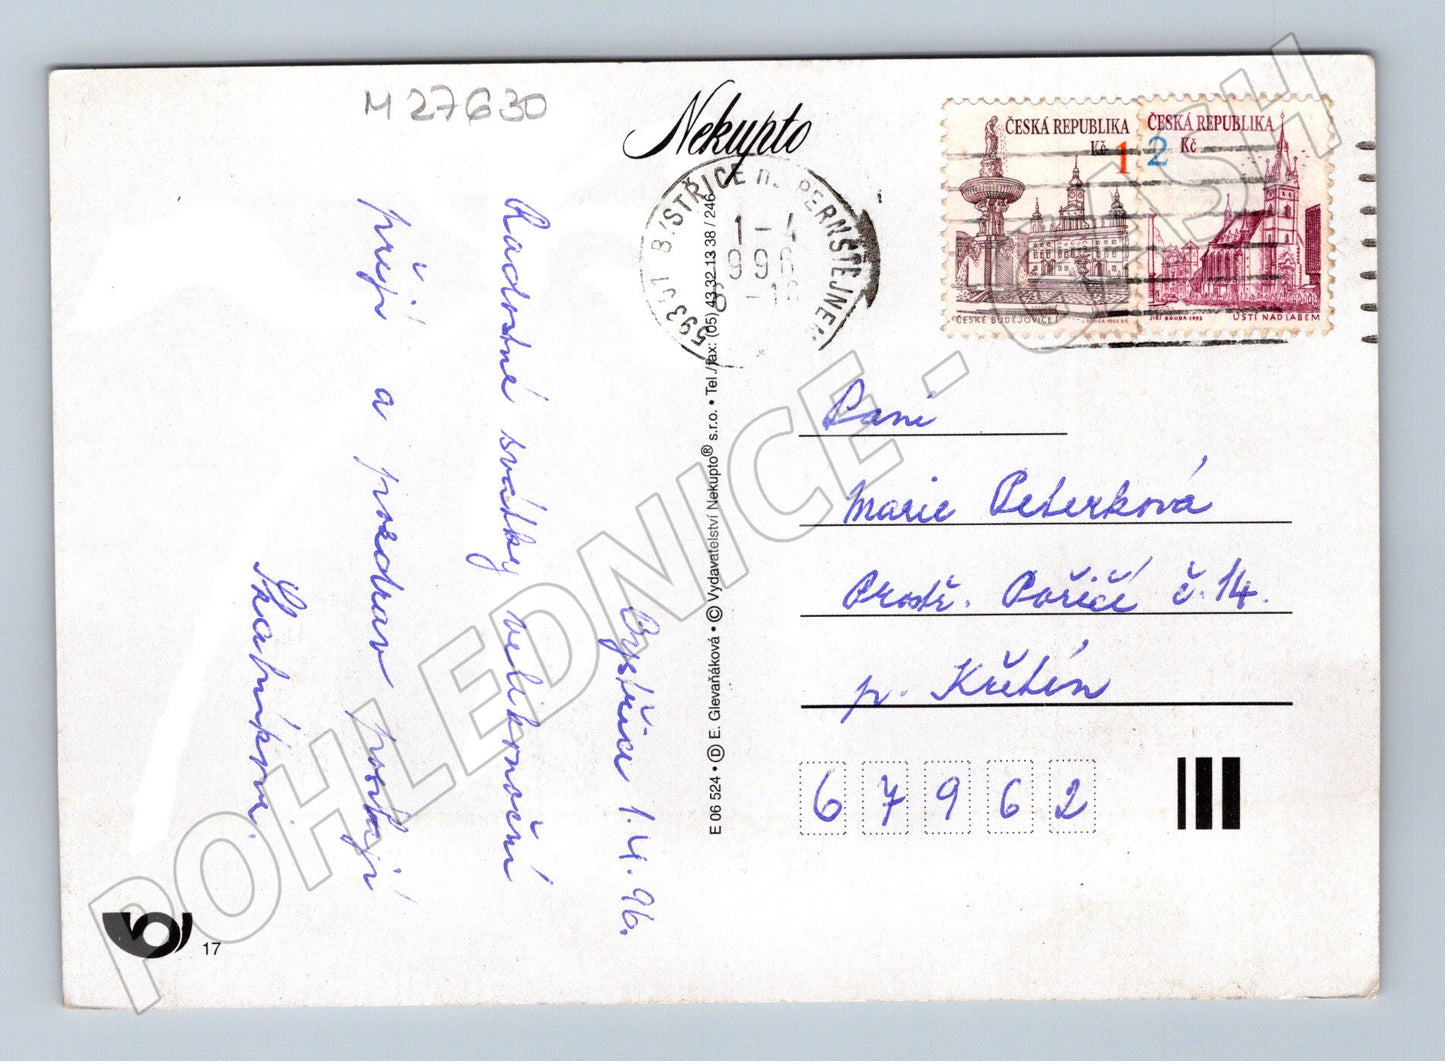 M 27630
Nekupto
ČESKÁ REPUBLIKA
Kč 1
ČESKÉ BUDĚJOVICE
ČESKÁ REPUBLIKA
2 Kč
JIŘÍ BOUDA 1993
ÚSTÍ NAD LABEM
593 01 BYSTŘICE n. PERNŠTEJNEM
1-4
996
-18
Bystřice 1.4.96.
Radostné svátky velikonoční
přejí a pozdrav posílají
E 06 524 • D E. Glevaňáková • © Vydavatelství Nekupto® s.r.o. • Tel./fax: (05) 43 32 13 38 / 246
Paní
Marie Peterková
Prostř. Poříčí č. 14.
p. Křetín
67962
17
POHLEDNICE - CASH